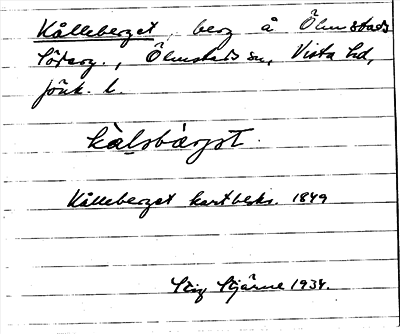 Kålleberget, berg å Ölmstads
Söderg., Ölmstads sn, Vista hd,
Jönk. l.
kàlsbárgət.
Kålleberget kartbeskr. 1849
Stig Stjärne 1934.